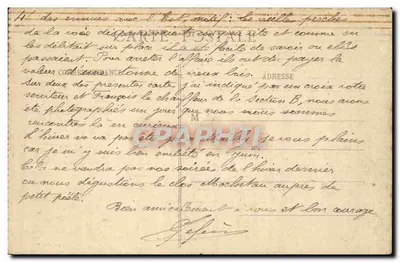 des ennuis avec l'Est, motif: les vieilles perches
de la voie disparaissaient et comme on
les débitait sur place il a été facile de savoir où elles
passaient. Pour arrêter l'affaire ils ont dû payer la
valeur d'une tonne de vieux bois.
CARTE POSTALE
CORRESPONDANCE
ADRESSE
Sur deux des présentes cartes j'ai indiqué par une croix votre
serviteur et François le chauffeur de la Section B, nous avons
été photographiés un jour que nous nous sommes
rencontrés là en
CPARAMA
L'hiver ne va pas je vous plains
car je m'y suis bien embêté en Juin.
Cela ne vaudra pas nos soirées de l'hiver dernier
où nous dégustions le clos auprès du
petit poêle.
Bien amicalement à vous et bon courage